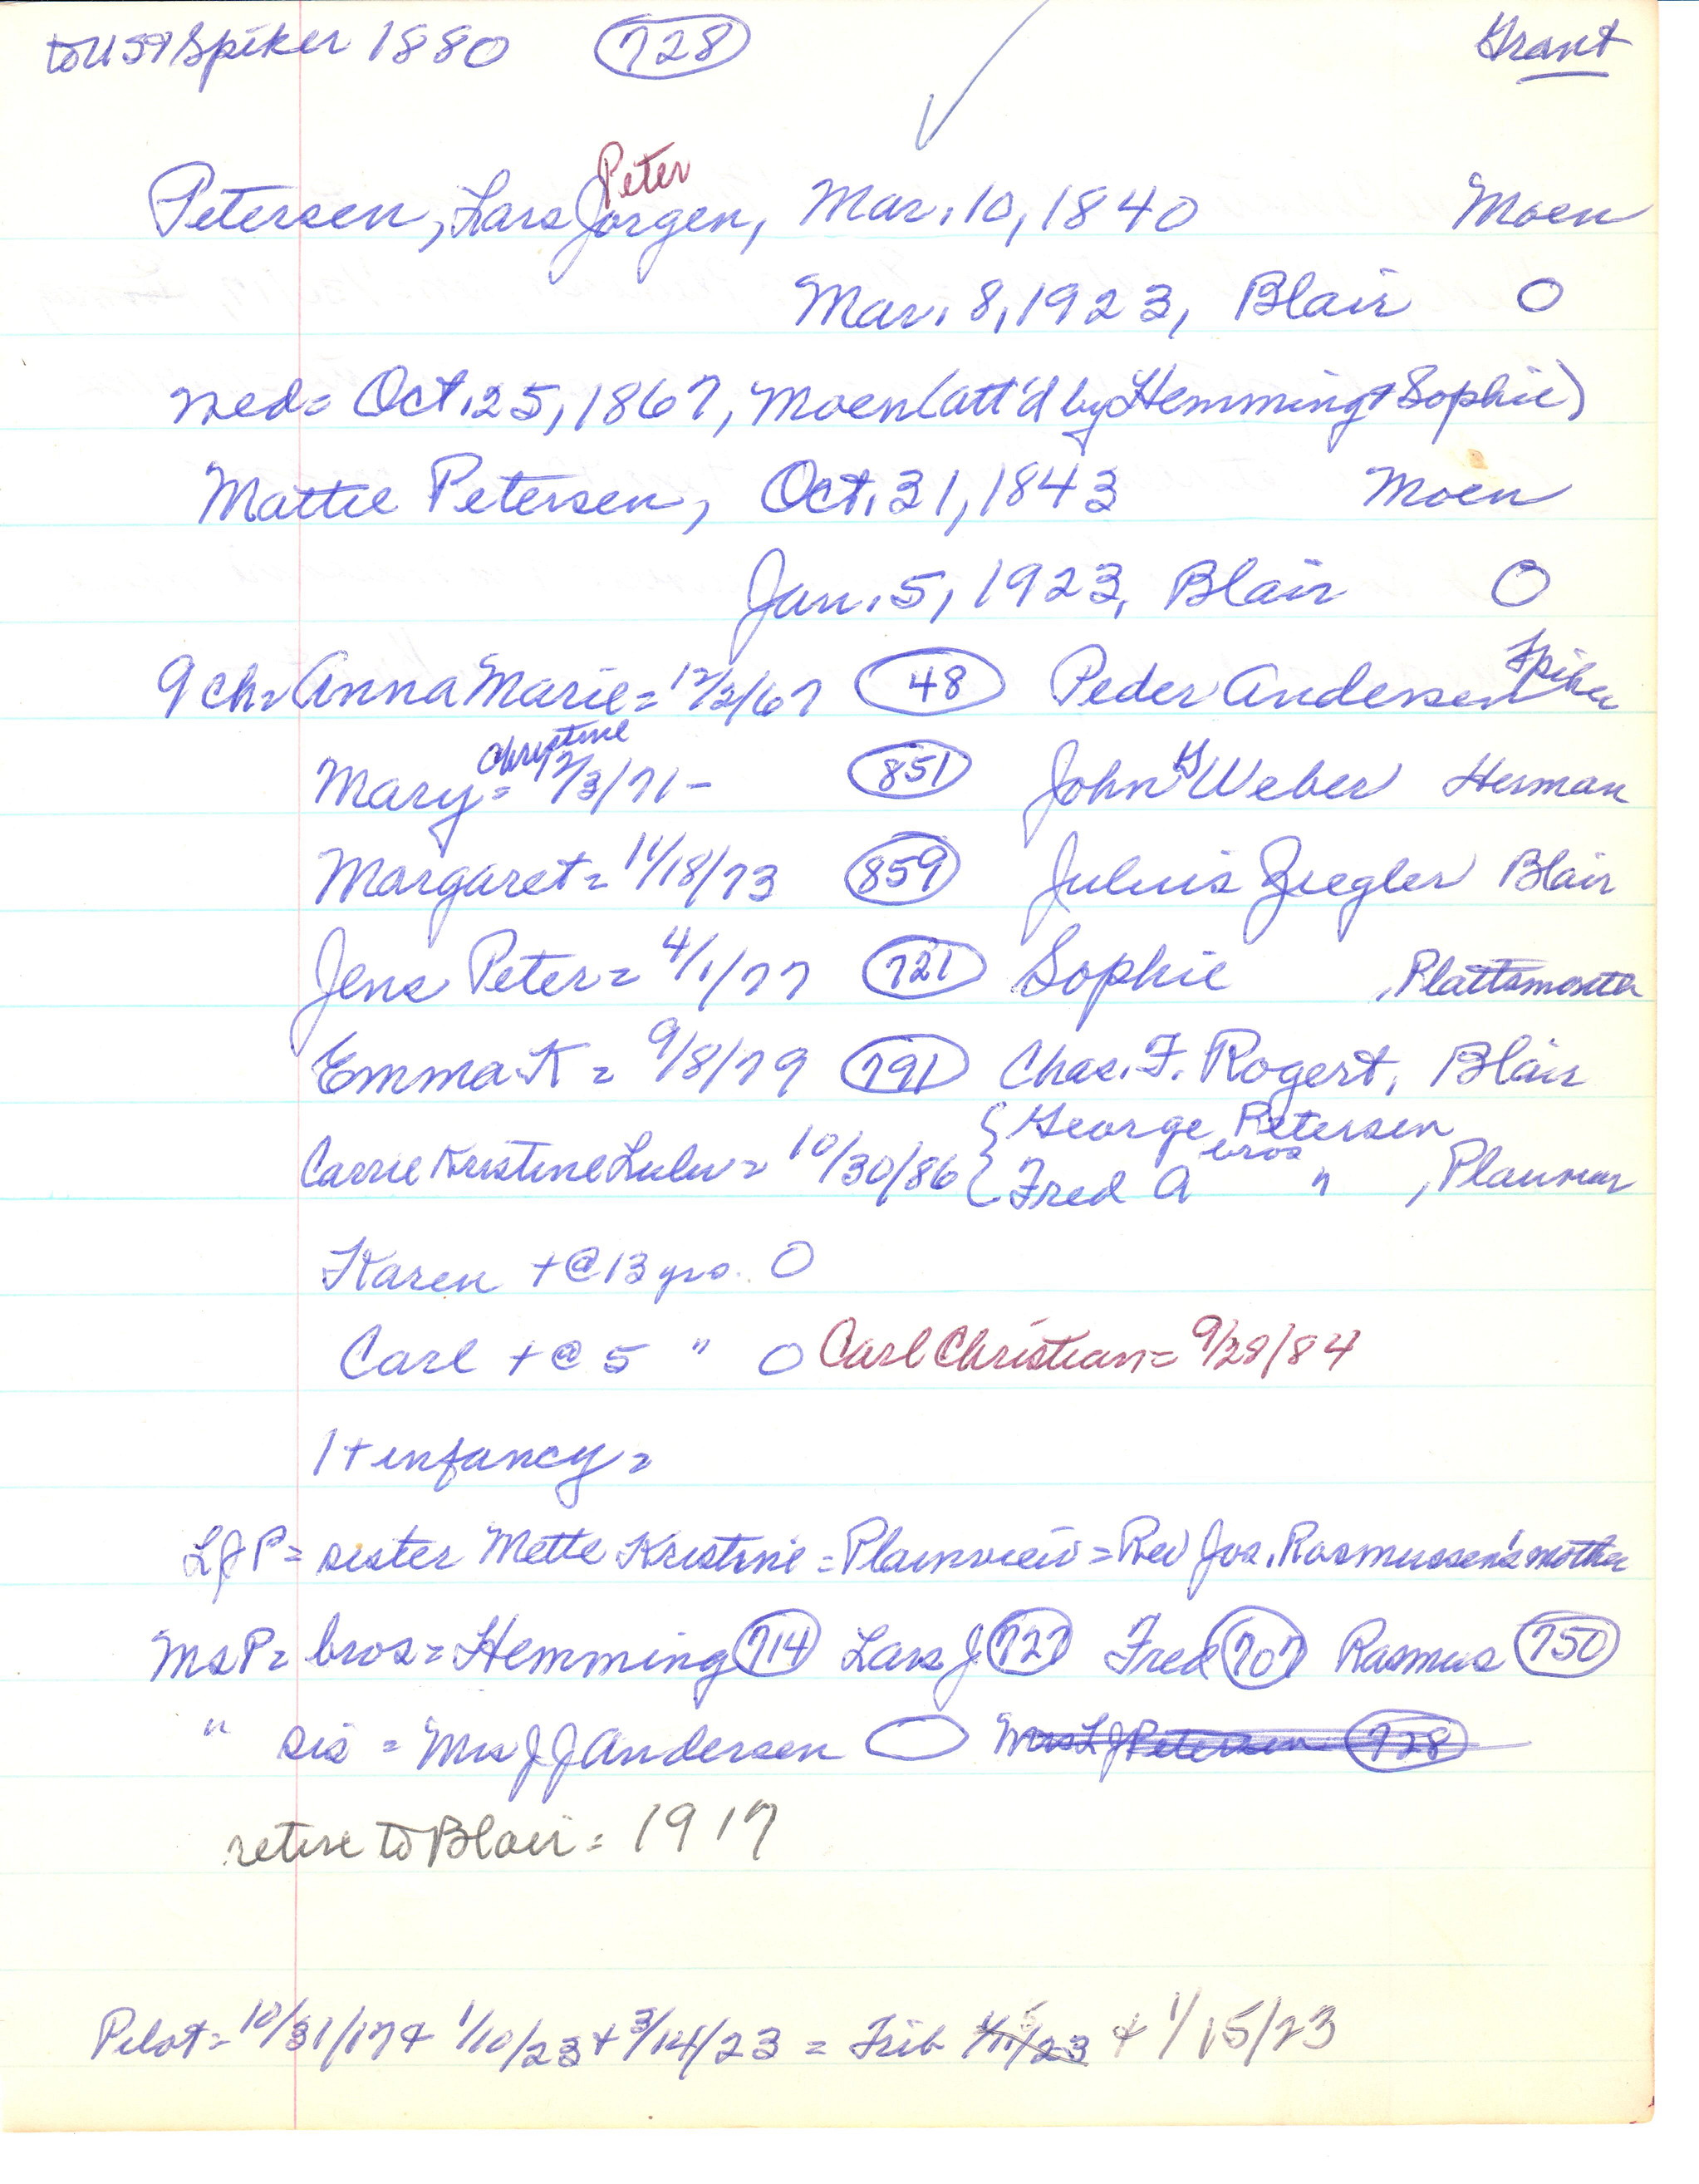 to US & Spiker 1880 728 Grant
Peter
Petersen, Lars Jorgen, Mar. 10, 1840 Moen
Mar. 8, 1923, Blair O
wed= Oct. 25, 1867, Moen (att'd by Hemming & Sophie)
Mattie Petersen, Oct. 31, 1843 Moen
Jan. 5, 1923, Blair O
9 ch= Anna Marie = 12/2/67 48 Peder Andersen Spiker
Christine
Mary = 12/3/71 - 851 John G Weber Herman
Margaret = 11/18/73 859 Julius Ziegler Blair
Jens Peter = 4/1/77 721 Sophie , Plattsmouth
Emma K = 9/8/79 791 Chas. F. Rogert, Blair
{ George Petersen
Carrie Kristine Lulu = 10/30/86 { bros
Fred A " , Plainview
Karen + @ 13 yrs. O
Carl + @ 5 " O Carl Christian = 9/28/84
1 + infancy =
LJP = sister Mette Kristine = Plainview = Rev Jos. Rasmussen's mother
MsP = bros = Hemming 714 Lars J 727 Fred 707 Rasmus 750
" sis = Mrs J J Andersen Mrs L J Petersen 728
retire to Blair = 1917
Pilot = 10/31/17 & 1/10/23 + 3/14/23 = Trib 1/11/23 & 1/15/23